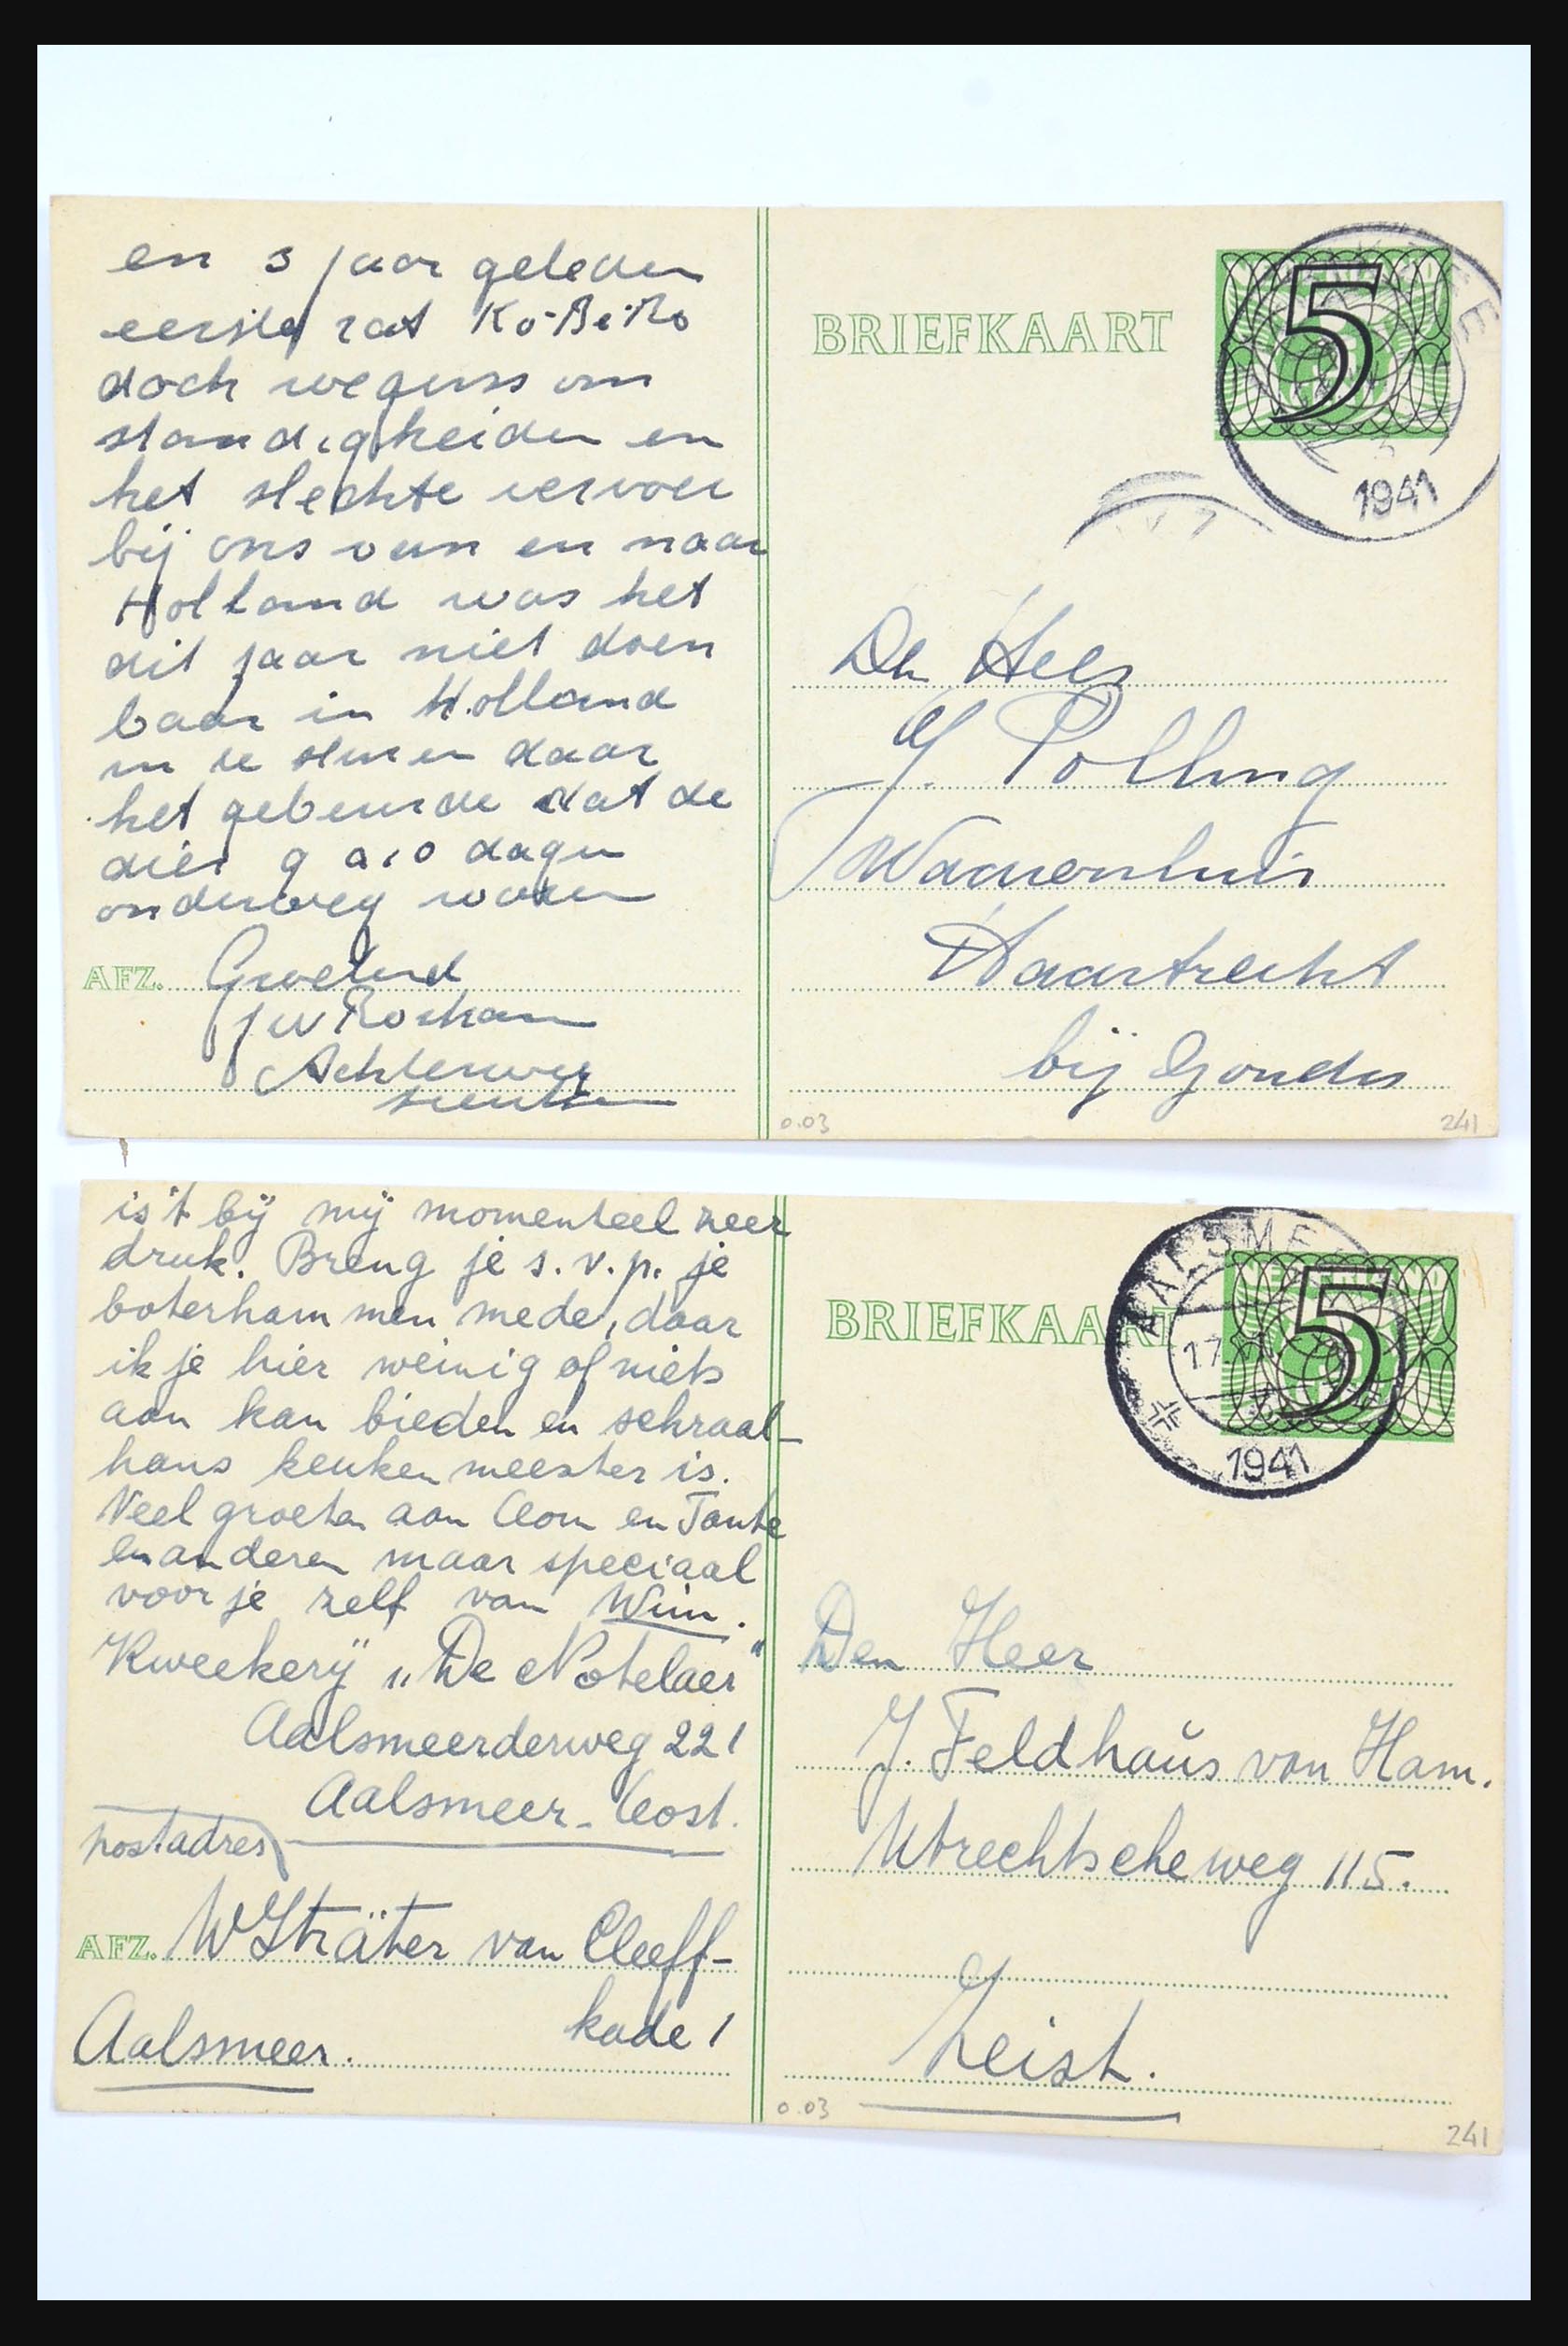 en 3 jaar geleden
eerste rat Ko-Be-Ro
doch wegens om
standigheiden en
het slechte vervoer
bij ons van en naar
Holland was het
dit jaar niet doen
baar in Holland
in te sturen daar
het gebeurde dat de
dier 9 a 10 dagen
onderweg waren
AFZ. Groetend
JW
Achterweg
BRIEFKAART
5
1941
De Heer
J. Polling
Haastrecht
bij Gouda
0.03
241
is 't bij mij momenteel zeer
druk. Breng je s.v.p. je
boterhammen mede, daar
ik je hier weinig of niets
aan kan bieden en schraal-
hans keukenmeester is.
Veel groeten aan Oom en Tante
en anderen maar speciaal
voor je zelf van Wim.
Kweekerij „De Notelaer"
Aalsmeerderweg 221
Aalsmeer-Oost.
postadres
AFZ. W Sträter van Cleeff-
kade 1
Aalsmeer.
BRIEFKAART
AALSMEER
17
5
1941
Den Heer
J. Feldhaus van Ham.
Utrechtscheweg 115.
Zeist.
0.03
241